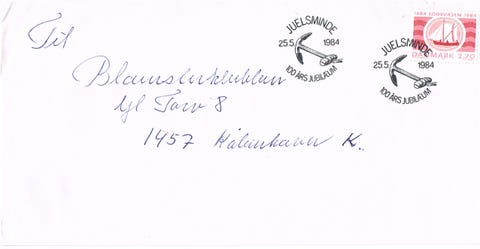 Til
JUELSMINDE
25.5 1984
100 ÅRS JUBILÆUM
JUELSMINDE
25.5 1984
100 ÅRS JUBILÆUM
1884 SØORSVÆSEN 1984
DANMARK 2.70
gl Torv 8
1457 København K.